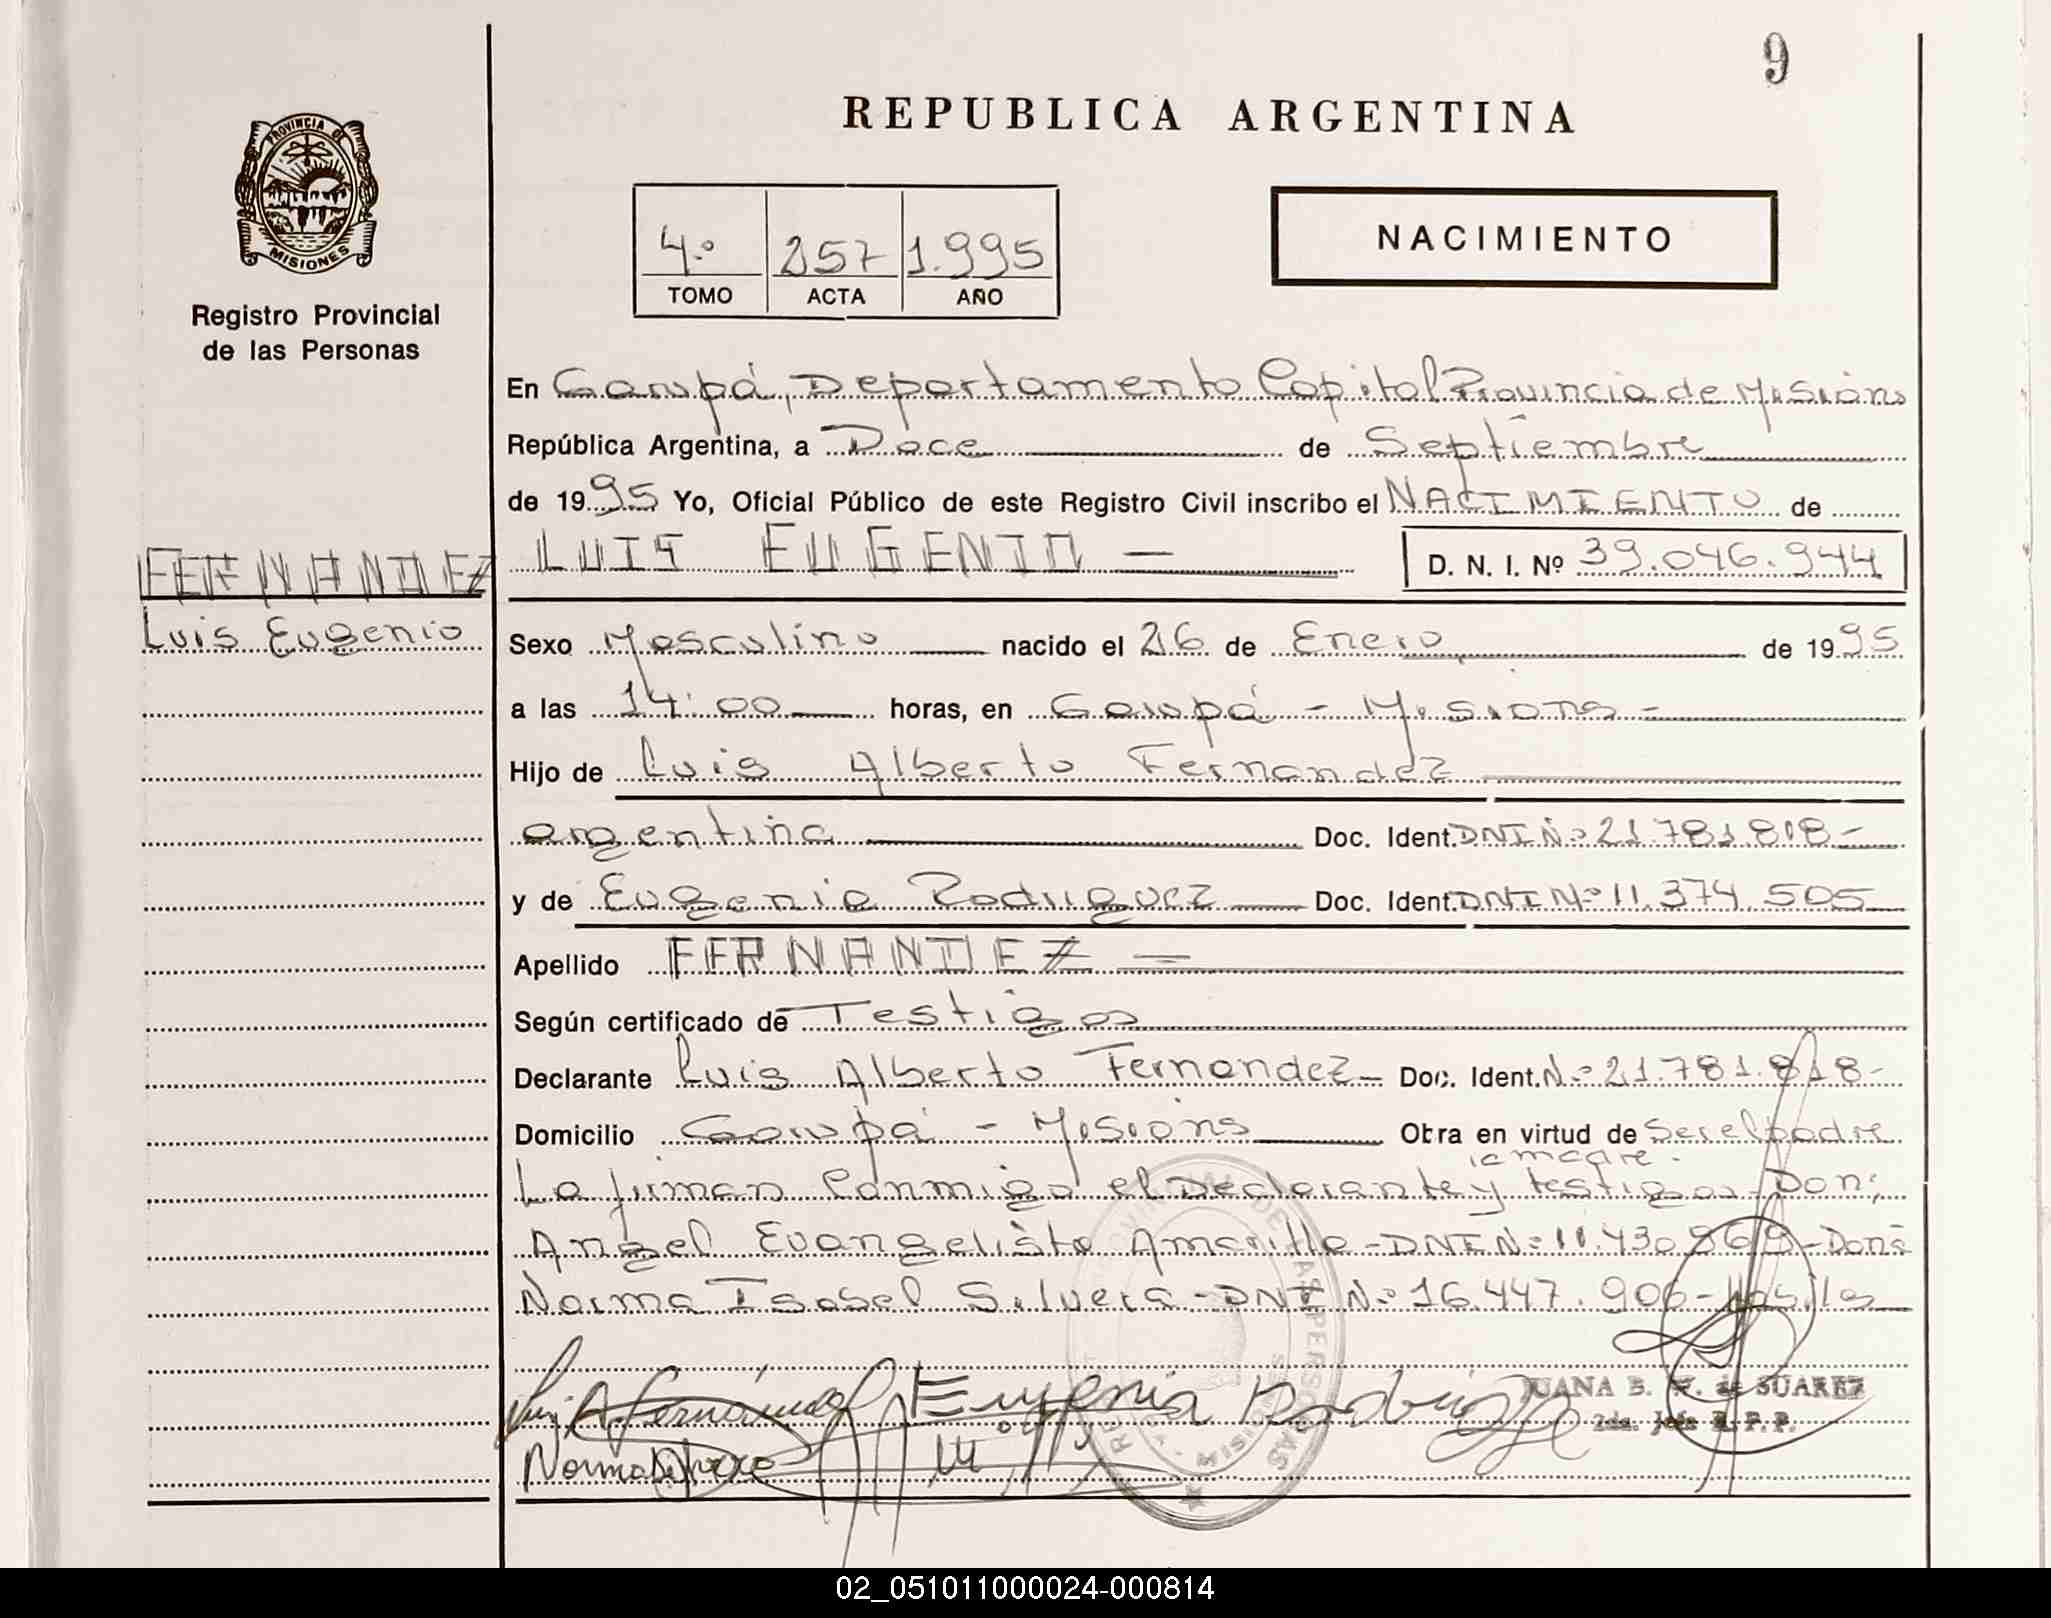 9
REPUBLICA ARGENTINA
PROVINCIA DE
MISIONES
Registro Provincial
de las Personas
4º 257 1.995
TOMO ACTA AÑO
NACIMIENTO
En Garupá, Departamento Capital Provincia de Misions
República Argentina, a Doce de Septiembre
de 1995 Yo, Oficial Público de este Registro Civil inscribo el NACIMIENTO de
FERNANDEZ LUIS EUGENIO — D. N. I. Nº 39.046.944
Luis Eugenio
Sexo Masculino nacido el 26 de Enero de 1995
a las 14:00 horas, en Garupá - Misions -
Hijo de Luis Alberto Fernandez
argentina Doc. Ident. DNI Nº 21.781.818-
y de Eugenia Rodriguez Doc. Ident. DNI Nº 11.374.505
Apellido FERNANDEZ —
Según certificado de Testigos
Declarante Luis Alberto Fernandez- Doc. Ident. Nº 21.781.818-
Domicilio Garupá - Misions Obra en virtud de Ser el padre
la madre -
La firman Conmigo el Declarante y testigos - Don:
Angel Evangelista Amarilla - DNI Nº 11.430.869 - Doña
Norma Isabel Silvera - DNI Nº 16.447.906-
Luis A. Fernández Eugenia Rodriguez
JUANA B. de SUAREZ
2da. Jefe R.P.P.
Norma
02_051011000024-000814